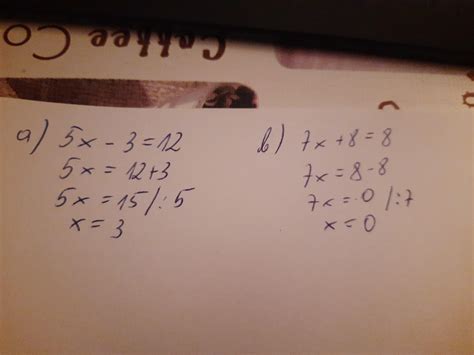 Coffee Co
a) 5x - 3 = 12
5x = 12+3
5x = 15 /: 5
x = 3
b) 7x + 8 = 8
7x = 8 - 8
7x = 0 /: 7
x = 0